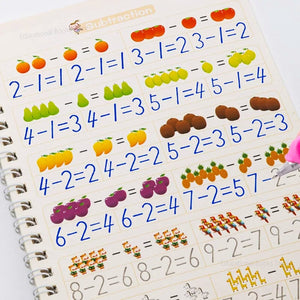 Subtraction
2-1=1 2-1=1 3-1=2 3-1=2
4-1=3 4-1=3 5-1=4 5-1=4
4-2=2 4-2=2 5-2=3 5-2=3
6-2=4 6-2=4 7-2=5 7-2=
8-2=6 8-2=6 9-2=7